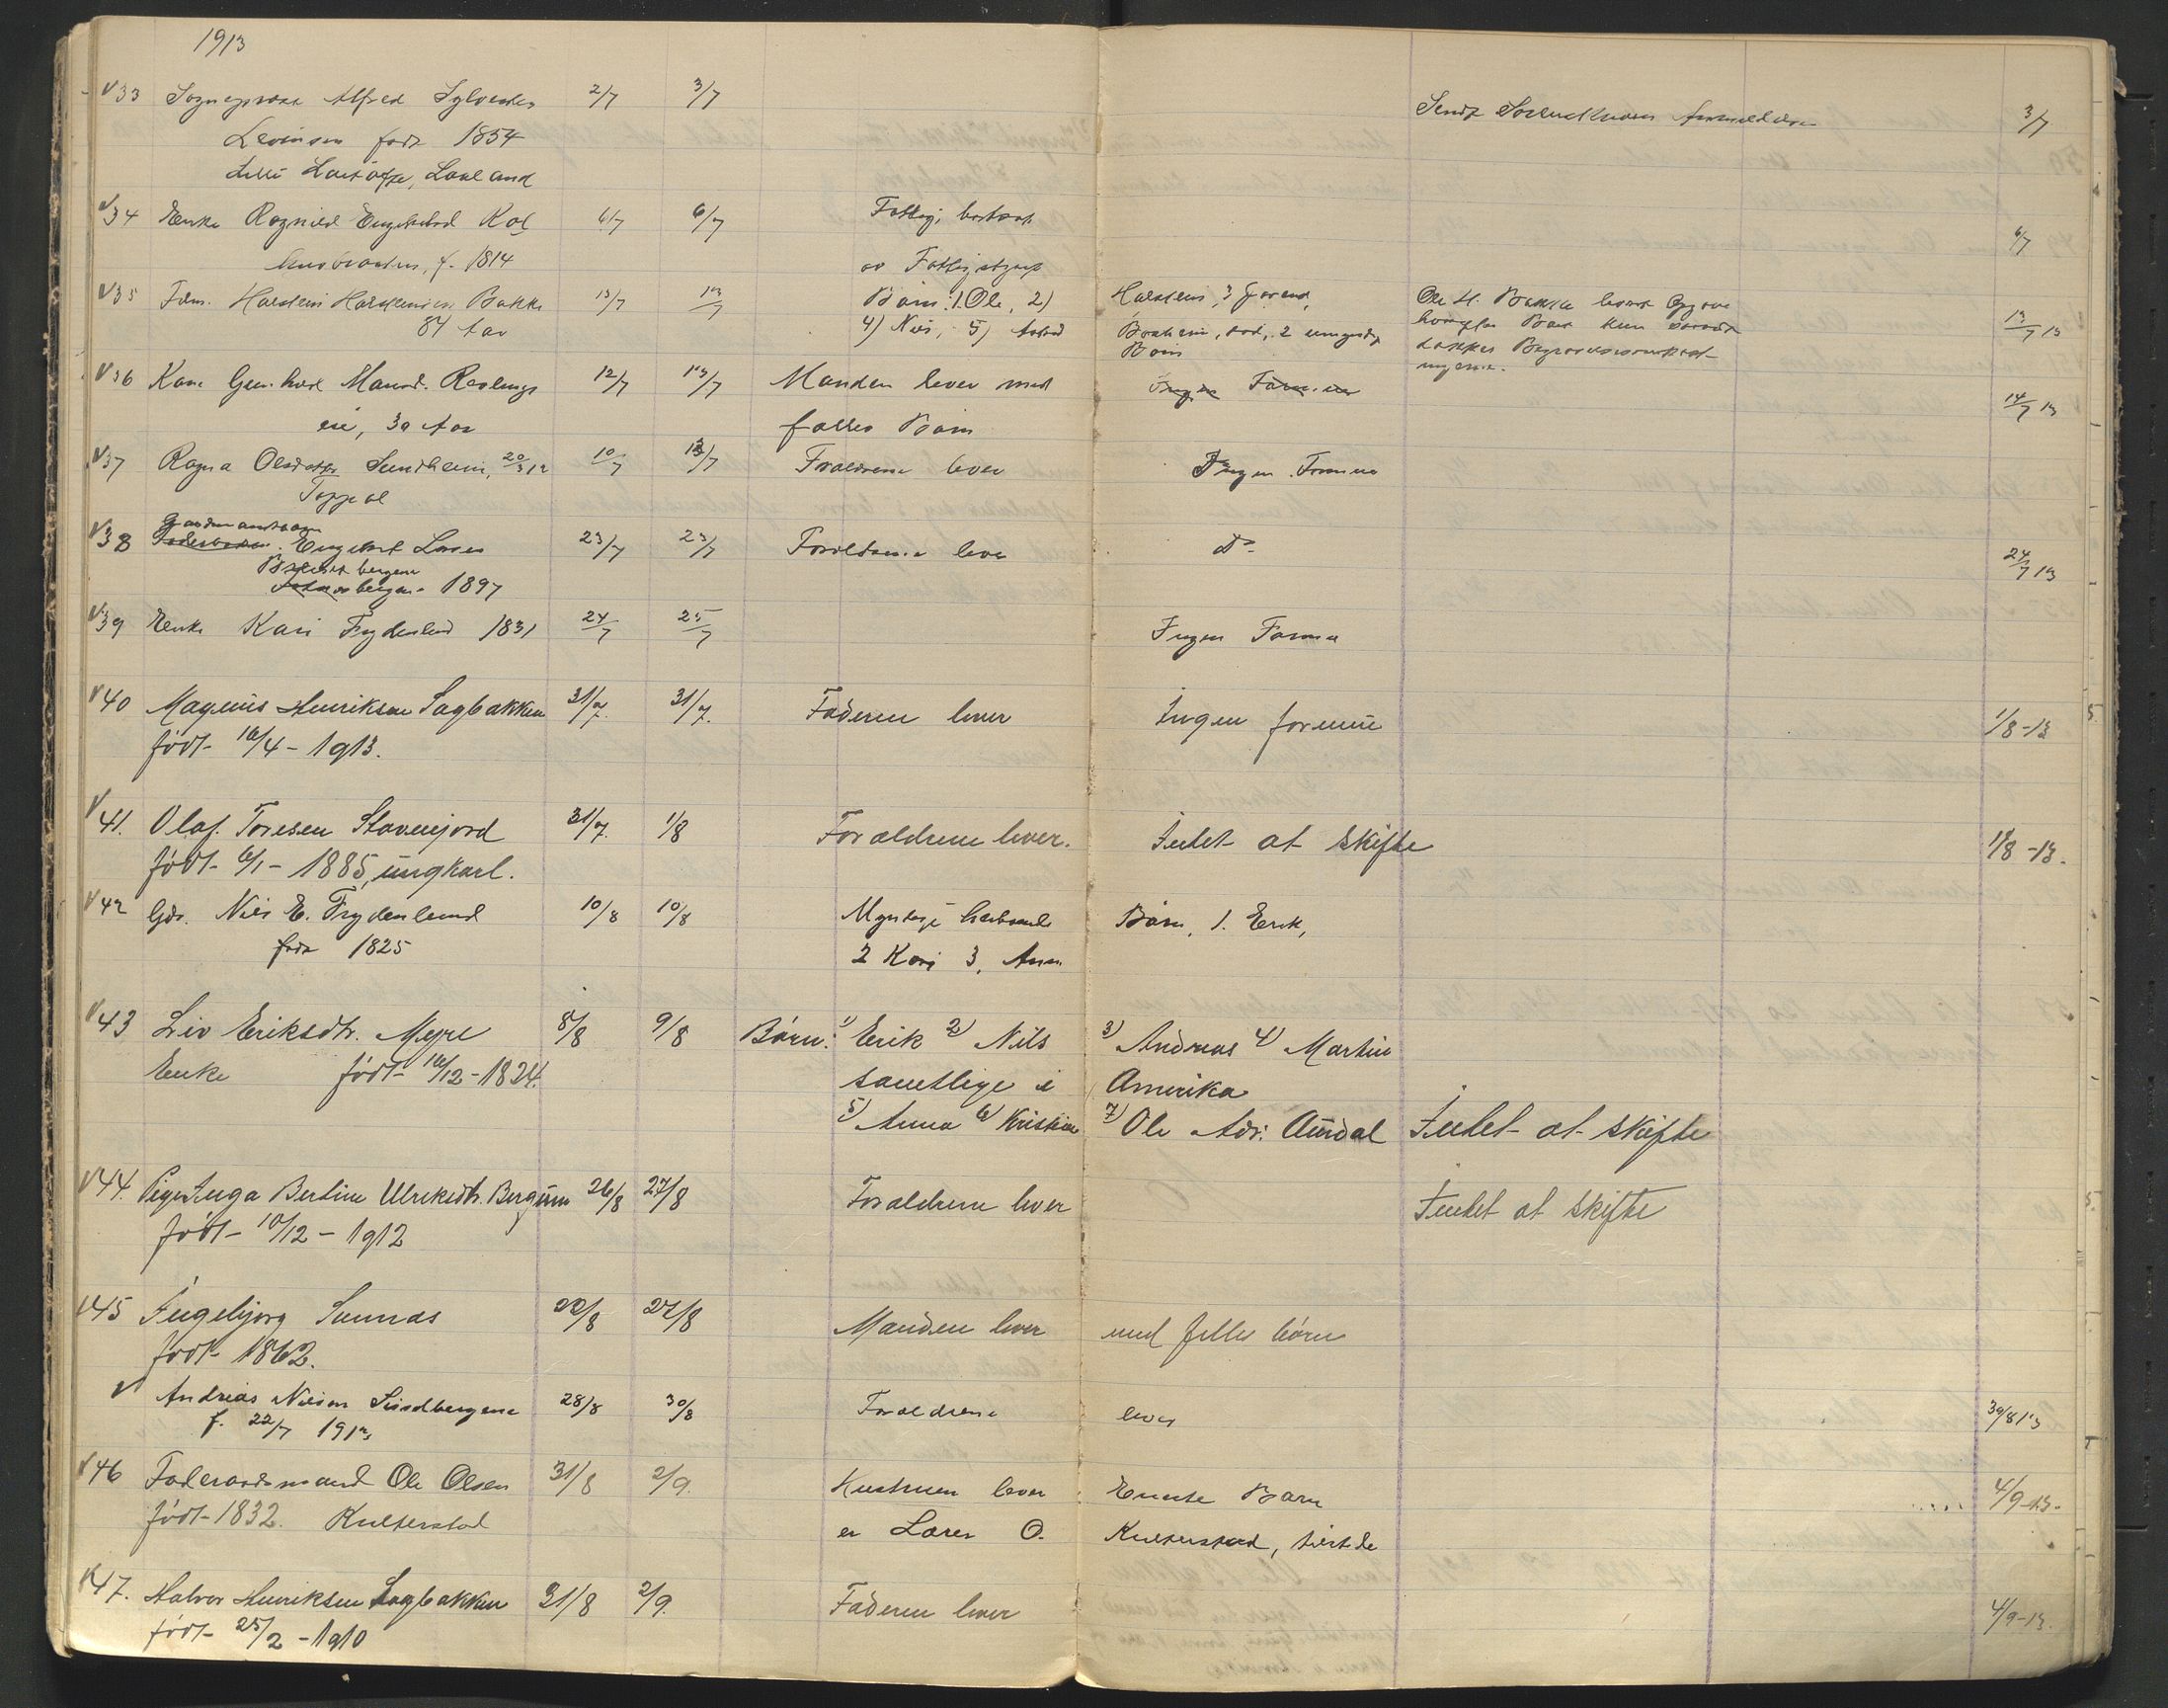 1913
33 Sogneprest Alfred Sylvester 2/7 3/7 Sendt 3/7
Levinsen født 1854
Laaland
34 Enke Ragnild Engebrtsd Kol 6/7 6/7 Fattig, 6/7
f. 1814
av
35 Fdm. Halstein Halstensen Bakke 13/7 13/7 Børn: 1. Ole, 2) Halstein, 3 Ole H. Bakke 13/7 13
84 Aar 4) Nils, 5) død, 2 umyndige
Børn kun
36 Kone Gunhild Reolungs 12/7 13/7 Manden lever med 14/7 13
eie, 30 Aar fælles Børn
37 Ragna Olesdatter Sundheim, 20/3 12 10/7 13/7 Forældrene lever Ingen Formue
38 Gaardmandssøn Engebret Larsen 23/7 23/7 Forældrene lever do 24/7 13
1897
39 Enke Kari Frydenlund 1831 24/7 25/7 Ingen Formue
40 Magnus Henriksen Sagbakken 31/7. 31/7. Faderen lever Ingen formue 1/8-13
født 16/4-1913.
41. Olaf Toresen Stavenjord 31/7. 1/8 Forældrene lever. Intet at skifte 1/8-13.
født 6/1-1885, ungkarl.
42 Gdr. Nils E. Frydenlund 10/8 10/8 Myndige Børn, 1. Erik,
født 1825 2 Kari 3, Anne
43 Liv Eriksdtr. Myre 8/8 9/8 Børn: 1) Erik 2) Nils 3) Andreas 4) Martin
Enke født 16/12-1824. samtlige i Amerika
5) Anna 6) Kristine 7) Ole Adr: Aurdal Intet at skifte
44. Pige Inga Bertine Ulriksdtr. Bergum 26/8 27/8 Forældrene lever Intet at skifte
født 10/12-1912
45 Ingebjørg Sunnas 22/8 27/8 Manden lever med felles børn
født 1862.
Andreas Nilsen Sundbergene 28/8 30/8 Forældrene lever 30/8 13
f. 22/7 1913
46 Foderaadsmand Ole Olsen 31/8 2/9. Hustruen lever Eneste Barn 4/9-13.
født 1832. Kulterstad er Lærer O. Kulterstad,
47. Halvor Henriksen Sagbakken 31/8 2/9. Faderen lever 4/9-13.
født 25/2-1910